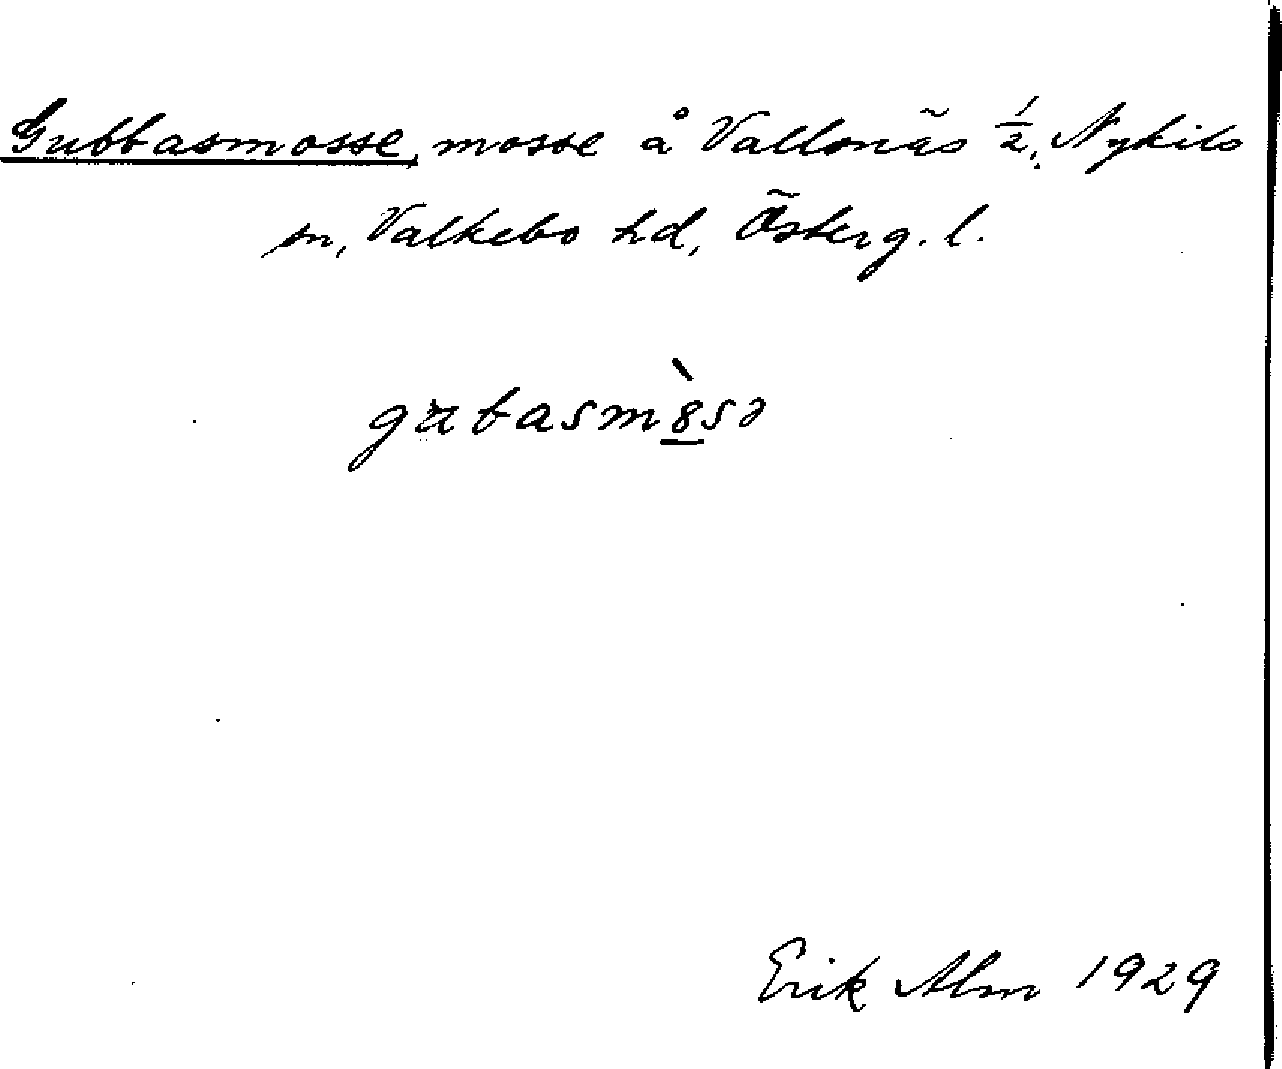 Gubbasmosse, mosse å Vallonäs 1/2, Nykils
sn, Valkebo hd, Österg. l.
gubasmò̱sə
Erik Alm 1929